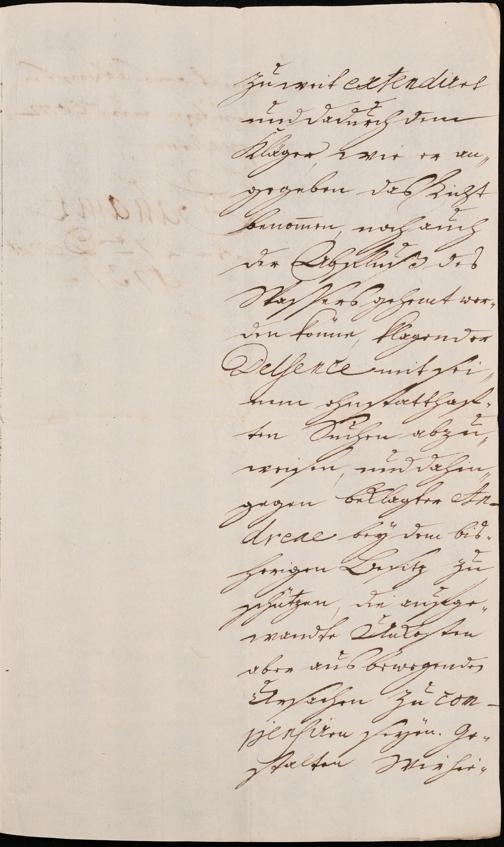 zu weit extendiret
und dadurch dem
Kläger, wie er an„
gegeben das Licht
benommen, noch auch
der Abfluß des
Wassers gehemt wer„
den könne, klagender
Delsence mit sei„
nem ohnstatthaf„
ten Suchen abzu„
weisen, und dahin„
gegen beklagter An„
dreae bey dem bis„
herigen Besitz zu
schützen, die aufge„
wandte Unkosten
aber aus bewegenden
Ursachen zu com„
pensiren seyen. Ge„
stalten Wir hie„